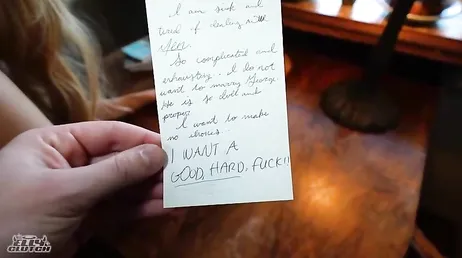 I am sick and
tired of dealing with
Men.
So complicated and
exhausting. I do not
want to marry George.
He is so dull and
proper.
I want to make
no choices.
I WANT A
GOOD, HARD, FUCK!!
CLUTCH